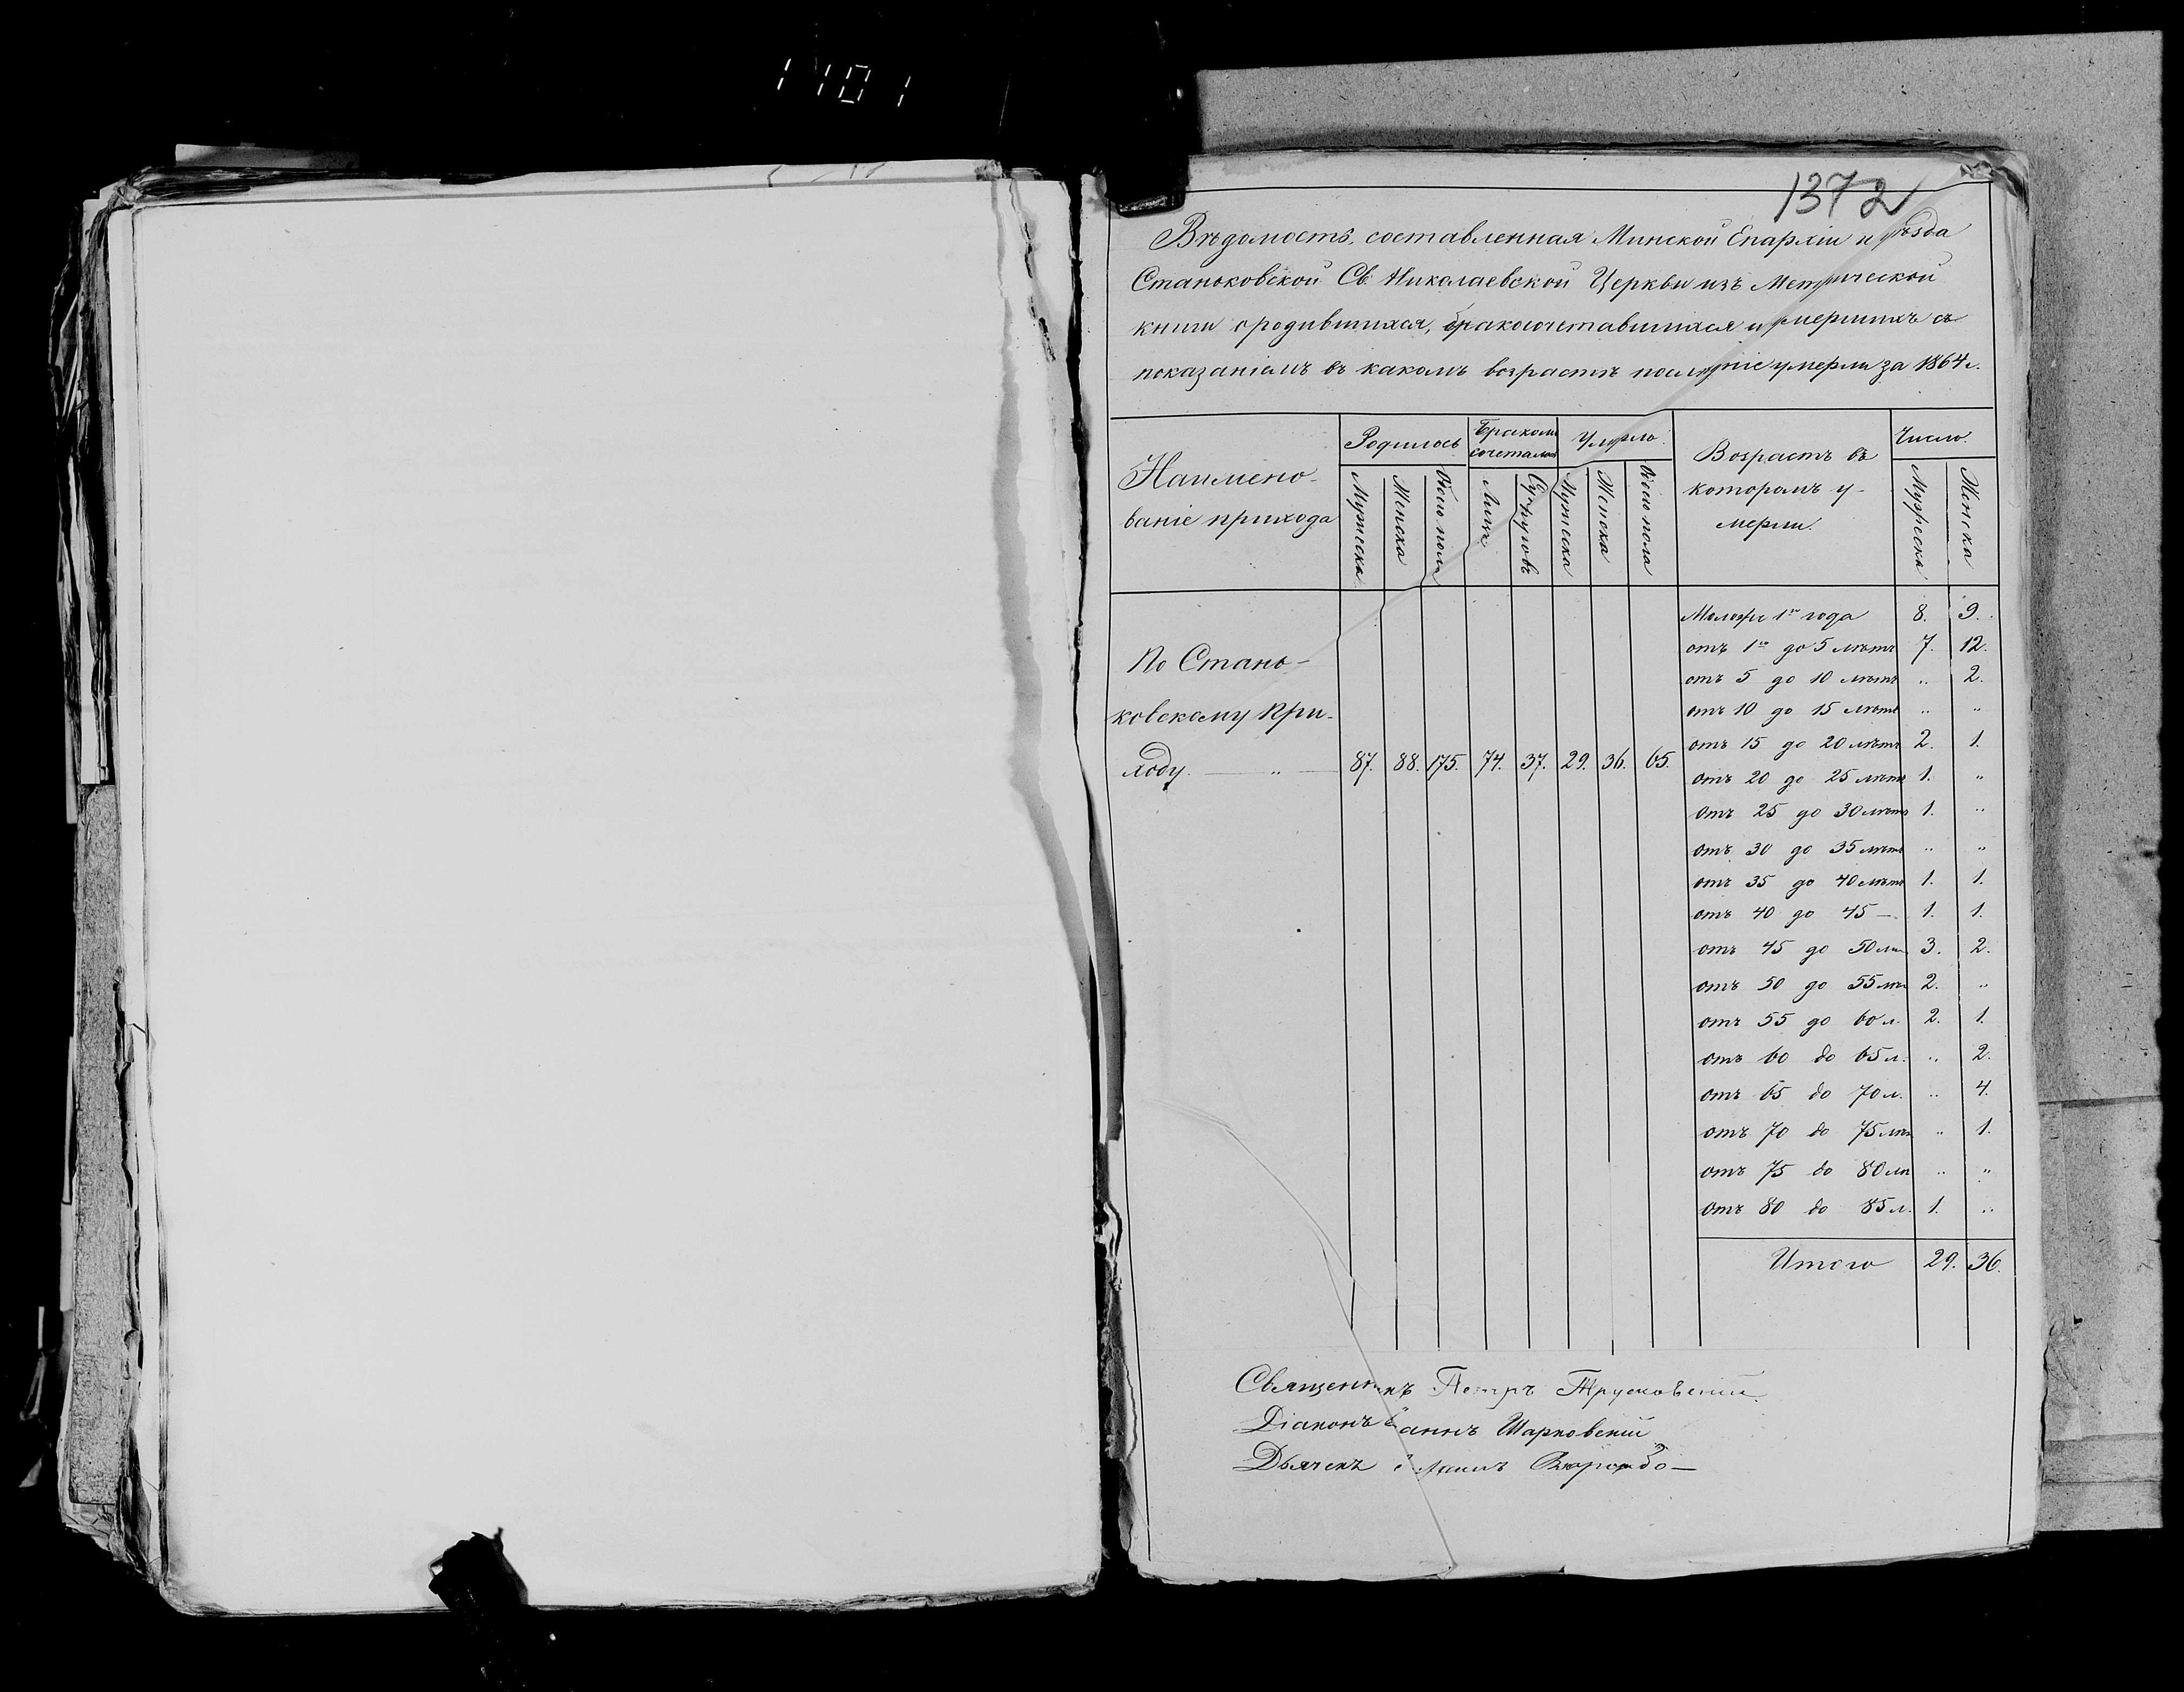 1401
1372
Вѣдомость, составленная Минской Епархіи и уѣзда
Станьковской Св. Николаевской Церкви изъ Метрической
книги о родившихся, бракосочетавшихся и умершихъ съ
показаніемъ въ какомъ возрастѣ послѣдніе умерли за 1864 г.
Наимено-
ваніе прихода
Родилось
Мужеска
Женска
Обоего пола
Бракомъ
сочеталось
Лицъ
Супруговъ
Умерло
Мужеска
Женска
Обоего пола
Возрастъ въ
которомъ у-
мерли.
Число.
Мужеска
Женска
По Стань-
ковскому При-
ходу — „ — 87. 88. 175. 74. 37. 29. 36. 65.
Моложе 1го года 8. 9.
отъ 1го до 5 лѣтъ 7. 12.
отъ 5 до 10 лѣтъ „ 2.
отъ 10 до 15 лѣтъ „ „
отъ 15 до 20 лѣтъ 2. 1.
отъ 20 до 25 лѣтъ 1. „
отъ 25 до 30 лѣтъ 1. „
отъ 30 до 35 лѣтъ „ „
отъ 35 до 40 лѣтъ 1. 1.
отъ 40 до 45 — 1. 1.
отъ 45 до 50 лѣ 3. 2.
отъ 50 до 55 лѣ 2. „
отъ 55 до 60 л. 2. 1.
отъ 60 до 65 л. „ 2.
отъ 65 до 70 л. „ 4.
отъ 70 до 75 лѣ „ 1.
отъ 75 до 80 лѣ „ „
отъ 80 до 85 л. 1. „
Итого 29. 36.
Священникъ Петръ
Діаконъ Іоаннъ Шарковскій
Дьячекъ